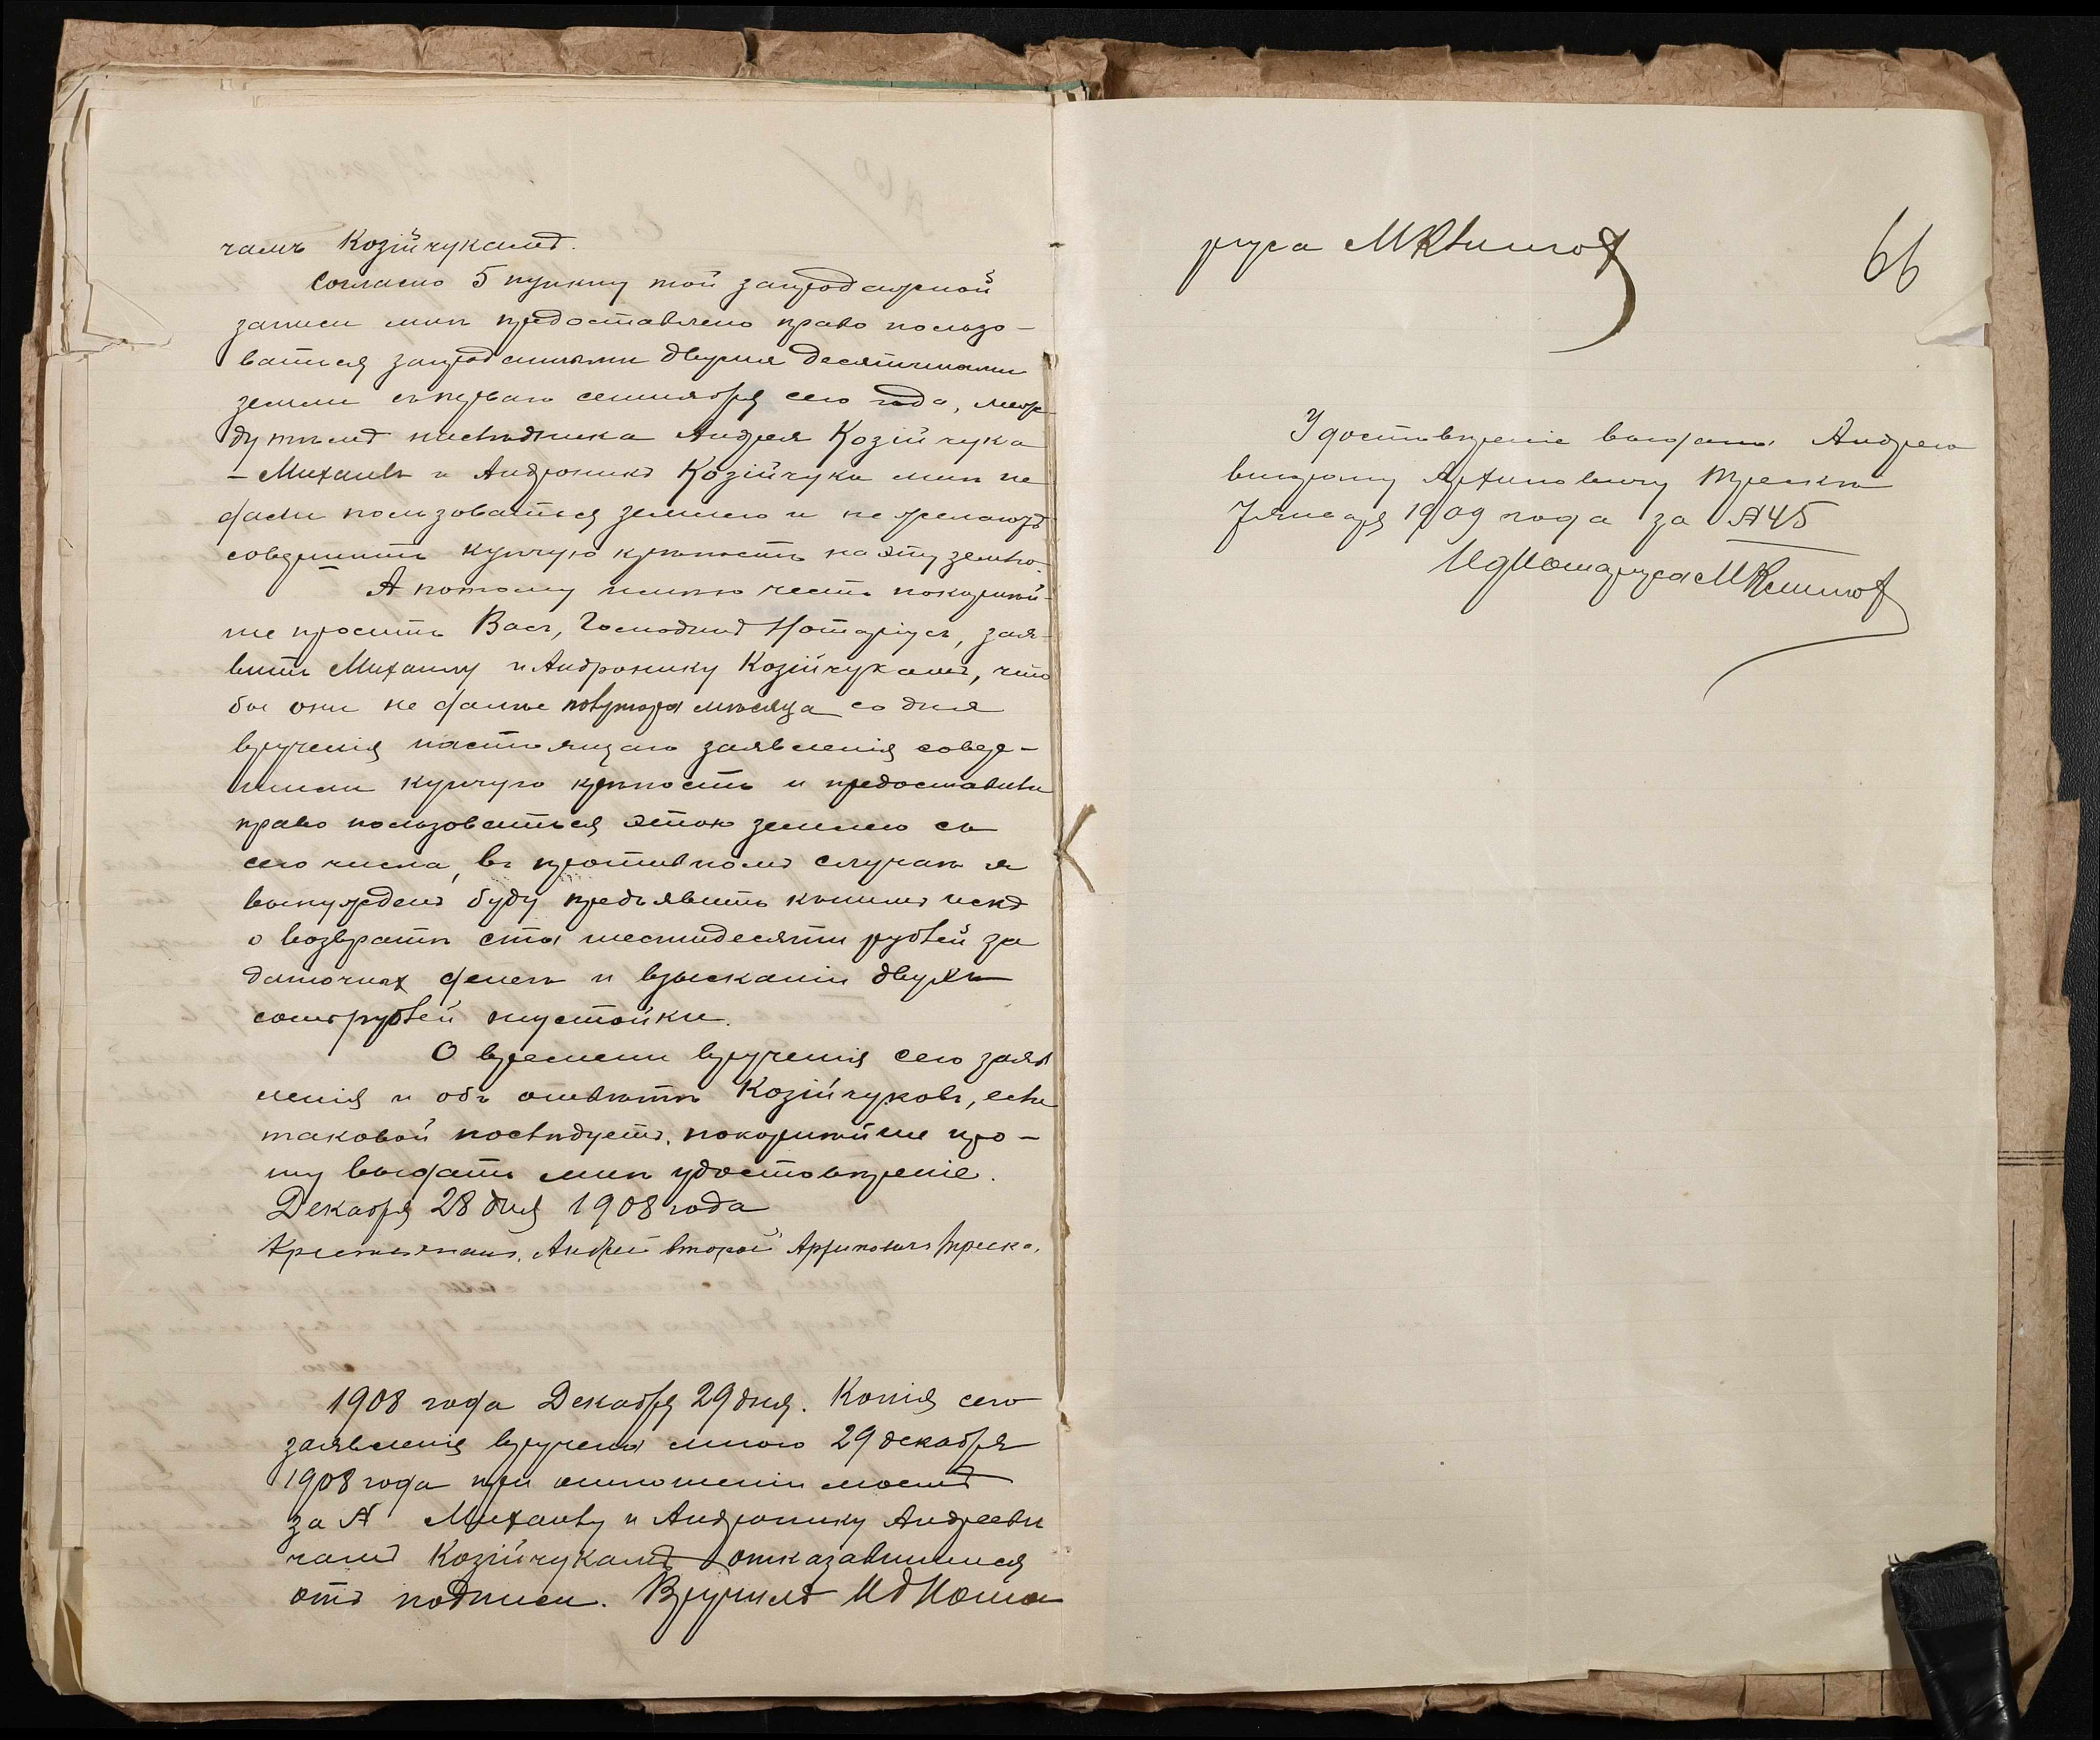 чамъ Козійчукамъ.
Согласно 5 пункту той запродажной
записи мнѣ предоставлено право пользо-
ваться запроданными двумя десятинами
земли съ перваго сентября сего года, меж
ду тѣмъ наслѣдника Андрея Козійчука
- Михаилъ и Андроникъ Козійчуки мнѣ не
дали пользоваться землею и не желаютъ
совершить купчую крѣпость на эту землю.
А потому имѣю честь покорнѣй-
ше просить Васъ, Господинъ Нотаріусъ, зая-
вить Михаилу и Андронику Козійчукамъ, что
бы они не далѣе полутора мѣсяца со дня
врученія настоящаго заявленія совер-
шили купчую крѣпость и предоставили
право пользоваться этою землею съ
сего числа, въ противномъ случаѣ я
вынужденъ буду предъявить къ нимъ искъ
о возвратѣ ста шестидесяти рублей за
даточныхъ денегъ и взысканіи двухъ
сотъ рублей неустойки.
О времени врученія сего заяв
ленія и объ отвѣтѣ Козійчуковъ, если
таковой послѣдуетъ, покорнѣйше про-
шу выдать мнѣ удостовѣреніе.
Декабря 28 дня 1908 года
Крестьянинъ Андрей второй Архиповичъ Треска.
1908 года Декабря 29 дня. Копія сего
заявленія вручена мною 29 декабря
1908 года при отношеніи моемъ
за № Михаилу и Андронику Андрееви
чамъ Козійчукамъ отказавшимся
отъ подписи. Вручилъ ИдНота
66
руса
Удостовѣреніе выдано Андрею
второму Архиповичу Трескѣ
7 января 1909 года за №45
ИдНотаруса